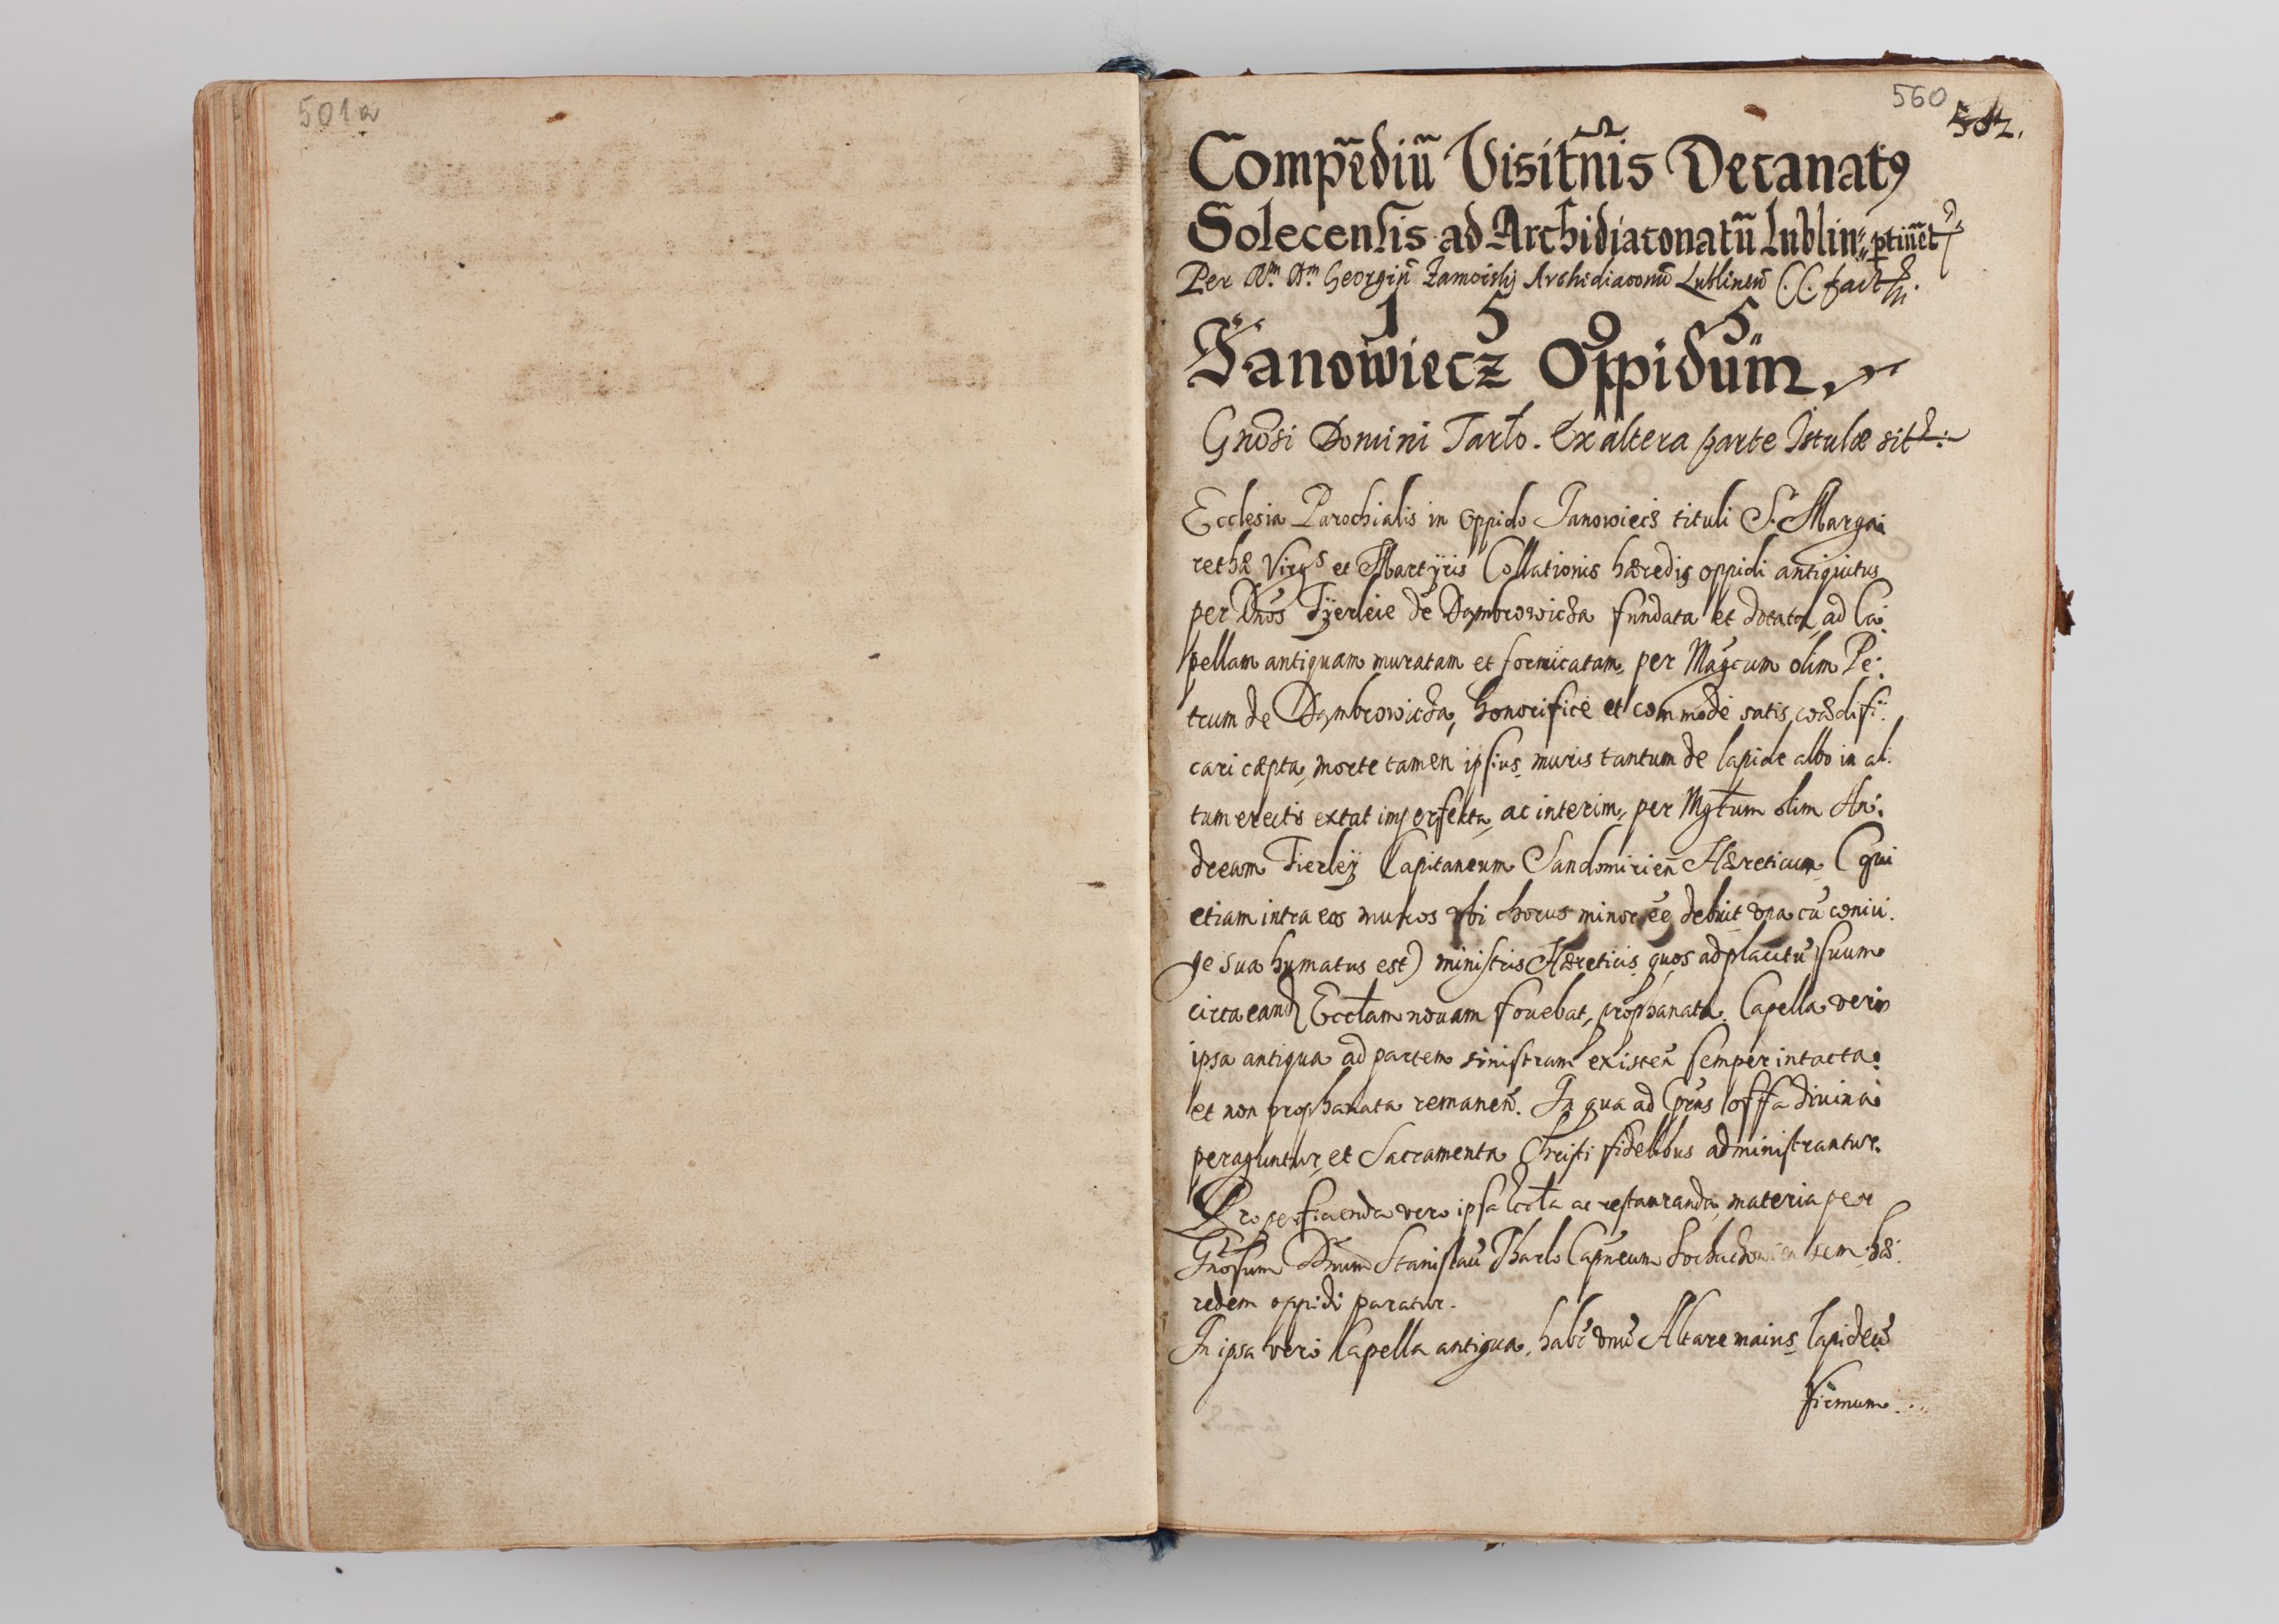 501a
560
502.
Compēdiū Visitn̄is Decanatꝯ
Solecensis ad Archidiaconatū Lublin: ptinēt
Per Rm. Dm. Georgiū Zamoiskij Archidiaconū Lublineñ C.C. fact
1 5 9 5
Janowiecz Oppidum
Gnōsi Domini Tarło. Ex altera parte Istulæ sit
Ecclesia Parochialis in oppido Janowiecz tituli S. Marga:
rethæ Virgs et Martÿris Collationis hæredis oppidi antiquitus
per Dnos Fÿrleie de Dambrowicza fundata et dotata, ad Ca:
pellam antiquam muratam et fornicatam, per Magcum olim Pe:
trum de Dambrowicza, honorificè et commodè satis, coædifi:
cari cæpta, morte tamen ipsius, muris tantum de lapide albo in al:
tum erectis extat imperfecta, ac interim, per Mgcum olim An:
dream Fierleÿ Capitaneum Sandomirieñ Hæreticum (qui
etiam intra eos muros vbi chorus minor ēe debuit vna cū coniu:
ge sua humatus est) ministris Hæreticis quos ad placitū suum
circa eand Eccłam nouam fouebat, prophanata. Capella verò
ipsa antiqua ad partem sinistram existeñ semper intacta:
et non prophanata remaneñ. In qua ad Pñs offa diuina
peraguntur, et Sacramenta Christi fidelibus administrantur.
Pro perficienda vero ipsa Eccła ac restauranda, materia per
Gnosum Dnum Stanislaū Tharlo Capneum Sochachowien sem hæ:
redem oppidi paratur.
In ipsa verò Capella antiqua, habē vnū Altare maius lapideū
firmum